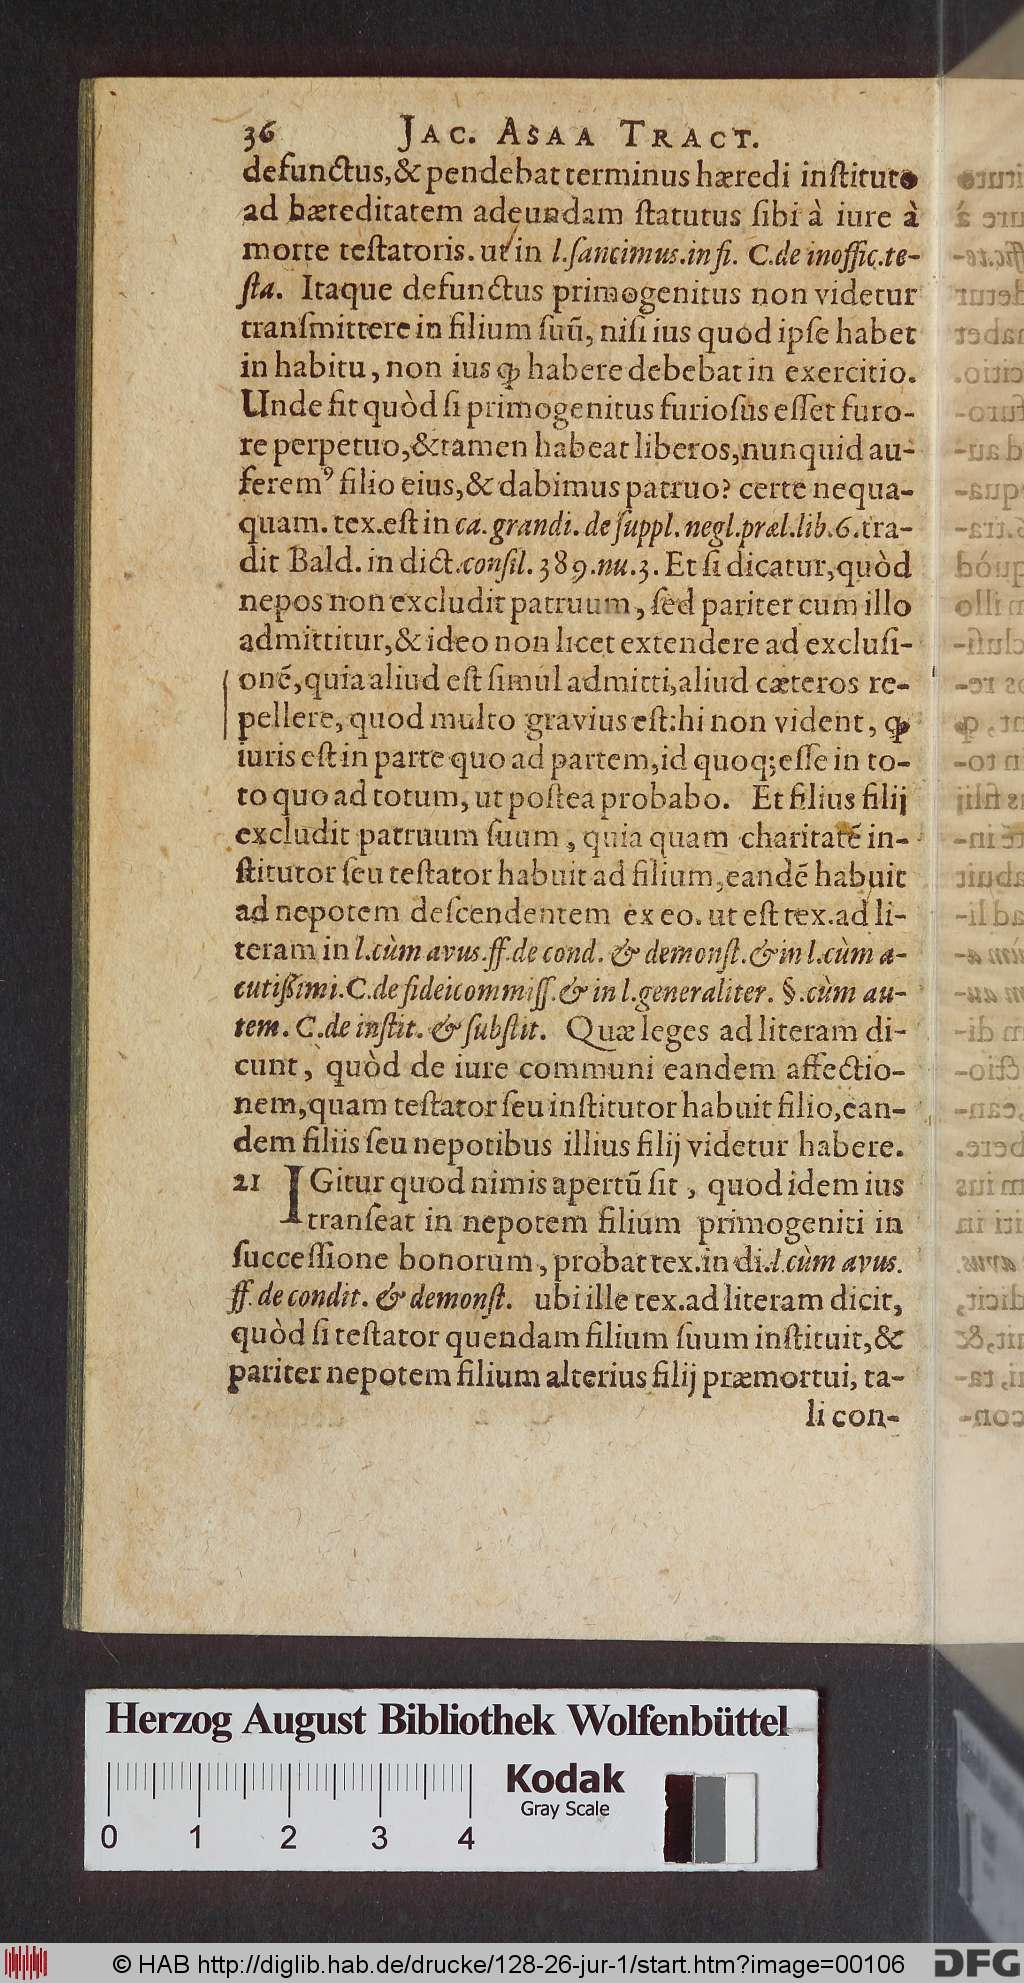 36 JAC. ASAA TRACT.
defunctus,& pendebat terminus hæredi instituto
ad hæreditatem adeundam statutus sibi à iure à
morte testatoris. ut in l.sancimus.in fi. C.de inoffic.te-
sta. Itaque defunctus primogenitus non videtur
transmittere in filium suũ, nisi ius quod ipse habet
in habitu, non ius ꝙ habere debebat in exercitio.
Unde fit quòd si primogenitus furiosus esset furo-
re perpetuo,&tamen habeat liberos,nunquid au-
feremꝰ filio eius,& dabimus patruo? certe nequa-
quam. tex.est in ca. grandi. de suppl. negl.præl.lib.6.tra-
dit Bald. in dict.consil. 389.nu.3. Et si dicatur,quòd
nepos non excludit patruum, sed pariter cum illo
admittitur,& ideo non licet extendere ad exclusi-
onẽ,quia aliud est simul admitti,aliud cæteros re-
pellere, quod multo gravius est: hi non vident, ꝙ
iuris est in parte quo ad partem,id quoq; esse in to-
to quo ad totum, ut postea probabo. Et filius filij
excludit patruum suum, quia quam charitatẽ in-
stitutor seu testator habuit ad filium,eandẽ habuit
ad nepotem descendentem ex eo. ut est tex.ad li-
teram in l.cùm avus.ff.de cond. & demonst.&in l.cùm a-
cutißimi.C.de fideicommiss.& in l.generaliter. §.cùm au-
tem. C.de instit. & substit. Quæ leges ad literam di-
cunt, quòd de iure communi eandem affectio-
nem,quam testator seu institutor habuit filio,ean-
dem filiis seu nepotibus illius filij videtur habere.
21 IGitur quod nimis apertũ sit, quod idem ius
transeat in nepotem filium primogeniti in
successione bonorum, probat tex.in di.l.cùm avus.
ff. de condit. & demonst. ubi ille tex.ad literam dicit,
quòd si testator quendam filium suum instituit,&
pariter nepotem filium alterius filij præmortui, ta-
li con-
Herzog August Bibliothek Wolfenbüttel
Kodak
Gray Scale
0 1 2 3 4
© HAB http://diglib.hab.de/drucke/128-26-jur-1/start.htm?image=00106
DFG